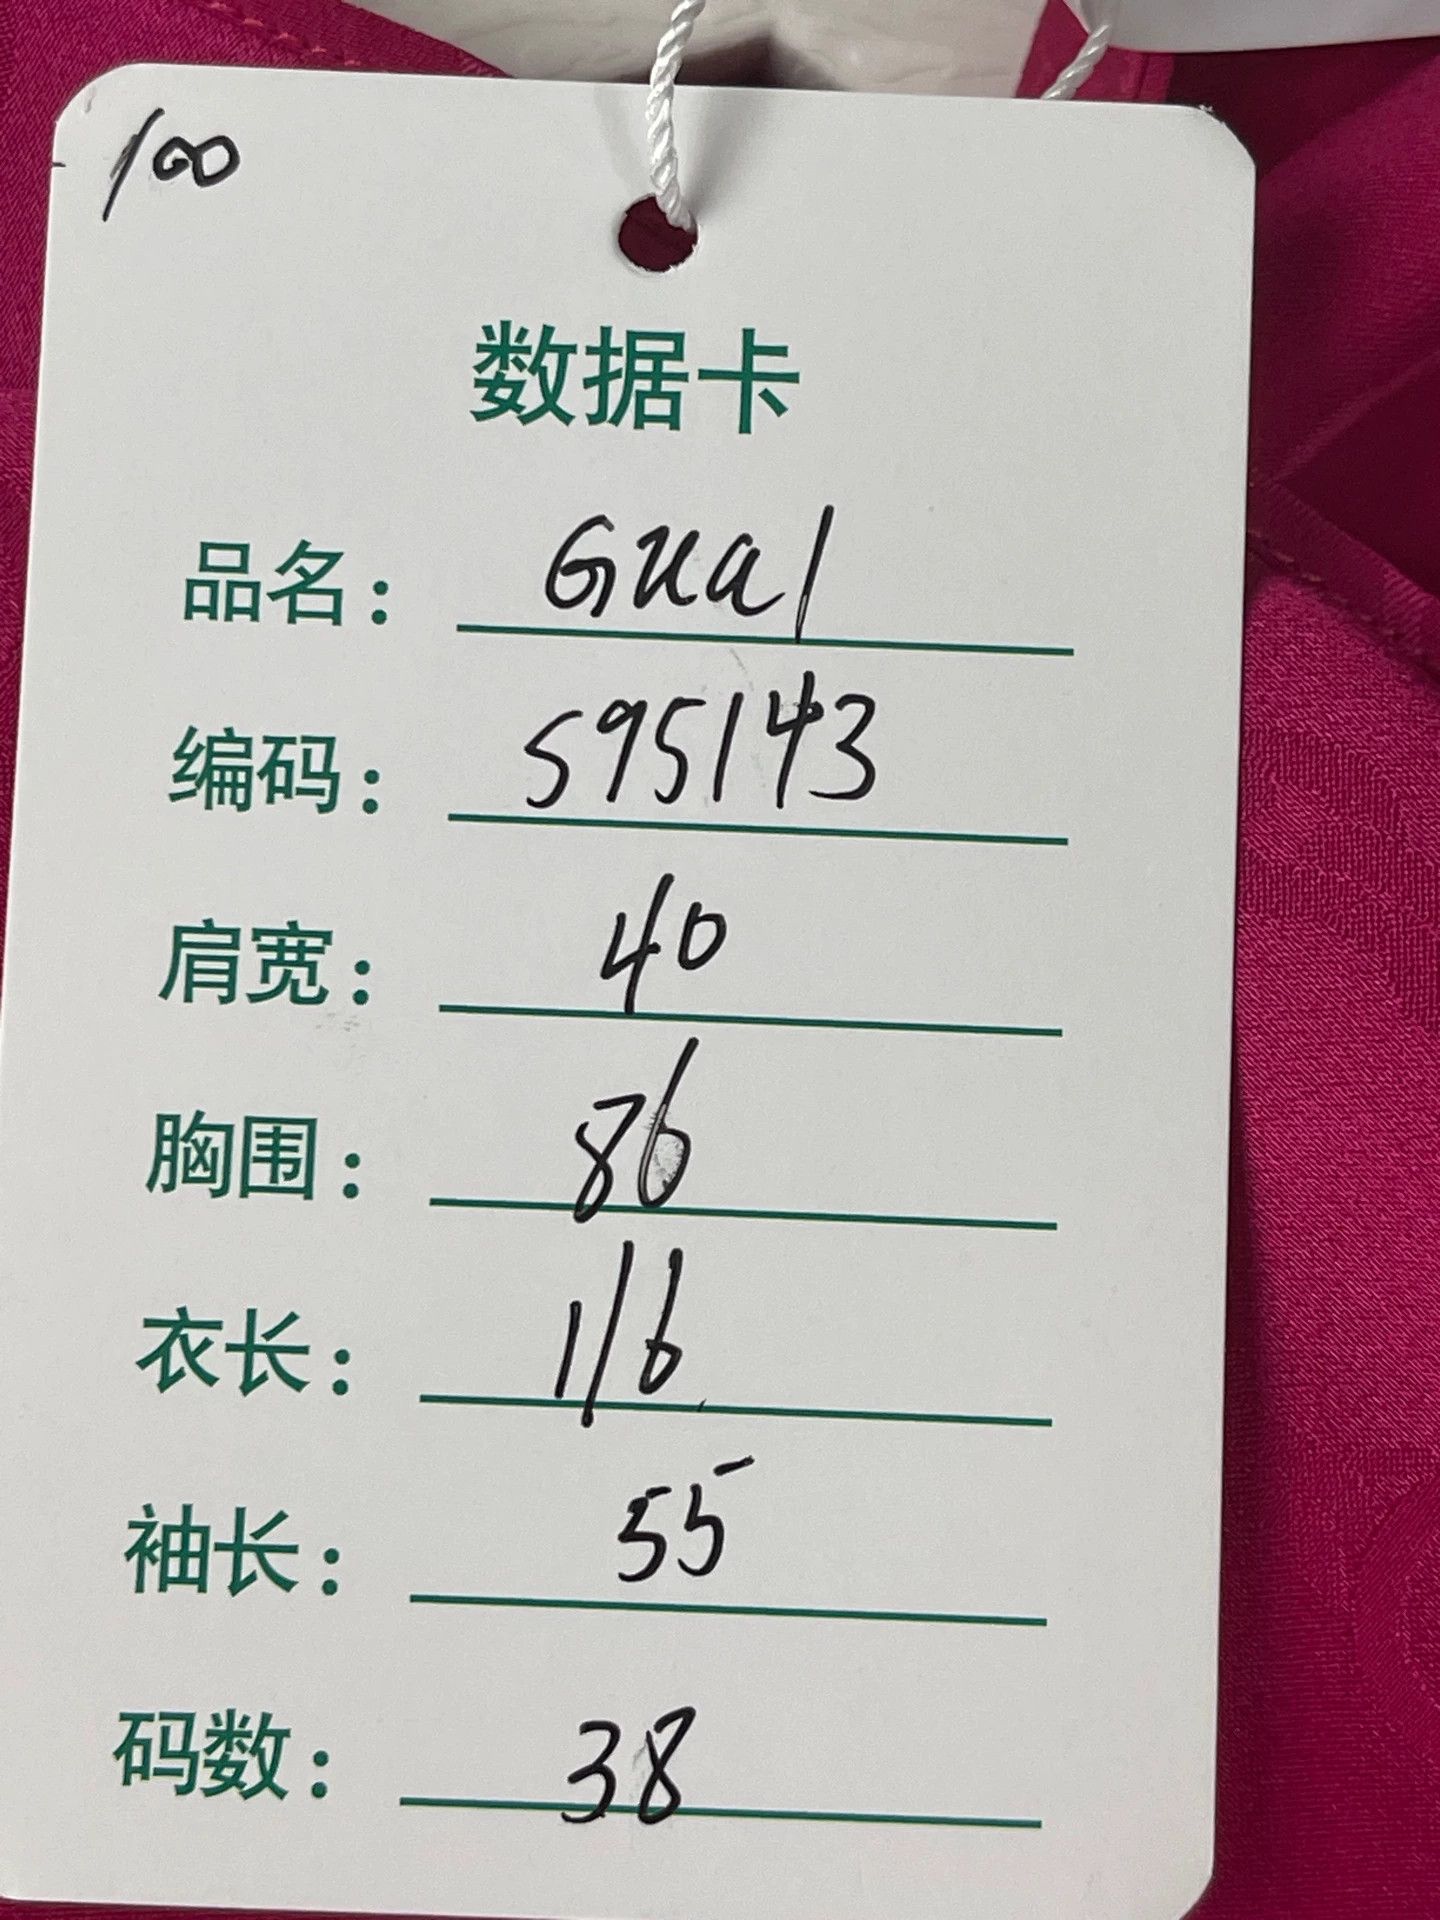 100
数据卡
品名: Gual
编码: S95143
肩宽: 40
胸围: 86
衣长: 116
袖长: 55
码数: 38